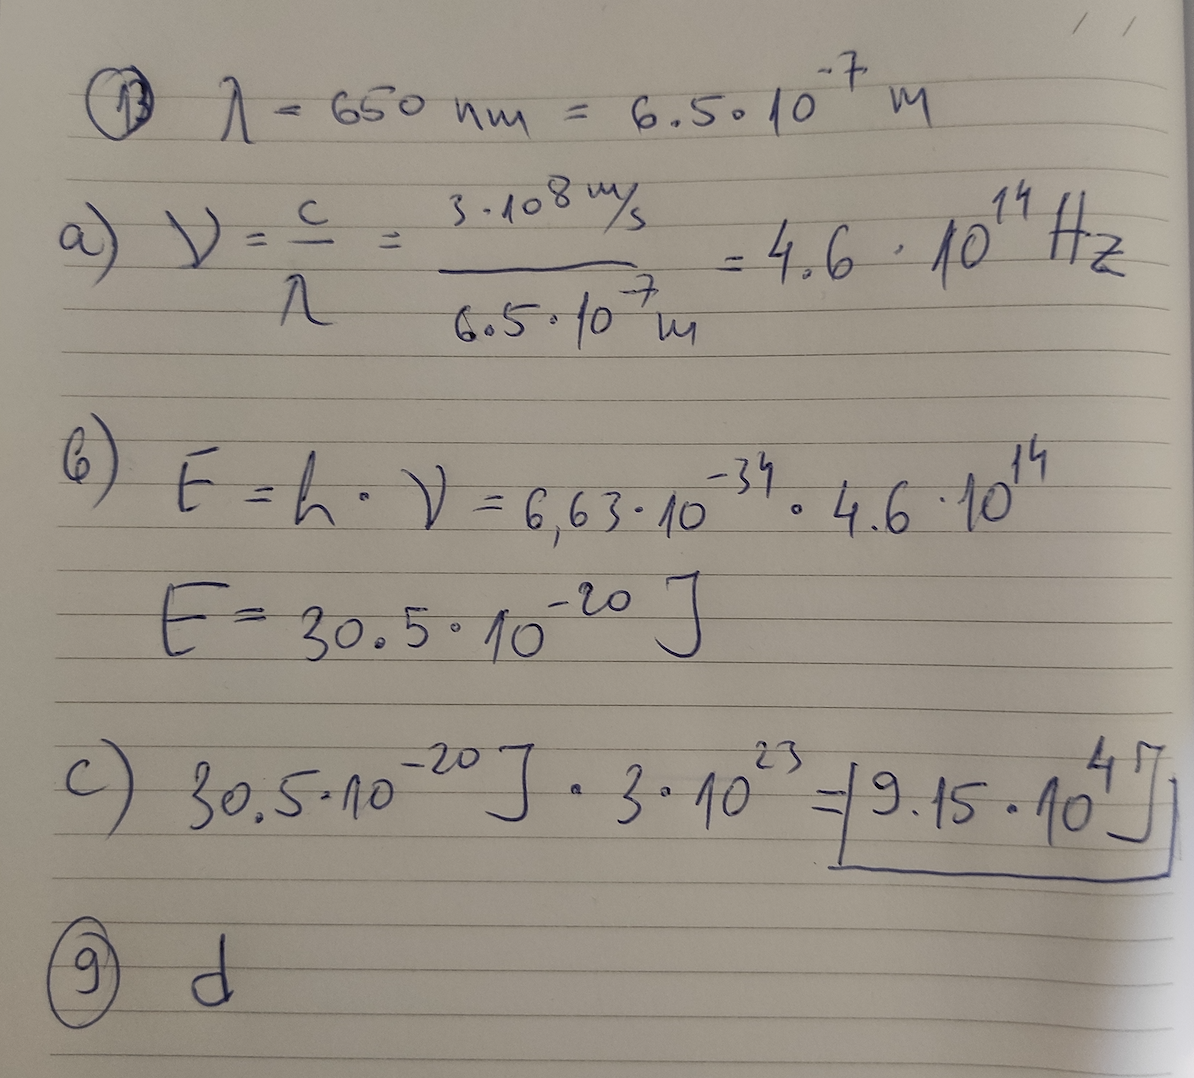 13 λ = 650 nm = 6.5·10⁻⁷ m
a) ν = c/λ = 3·10⁸ m/s / 6.5·10⁻⁷ m = 4.6·10¹⁴ Hz
b) E = h·ν = 6,63·10⁻³⁴·4.6·10¹⁴
E = 30.5·10⁻²⁰ J
c) 30.5·10⁻²⁰ J·3·10²³ = 9.15·10⁴ J
9 d